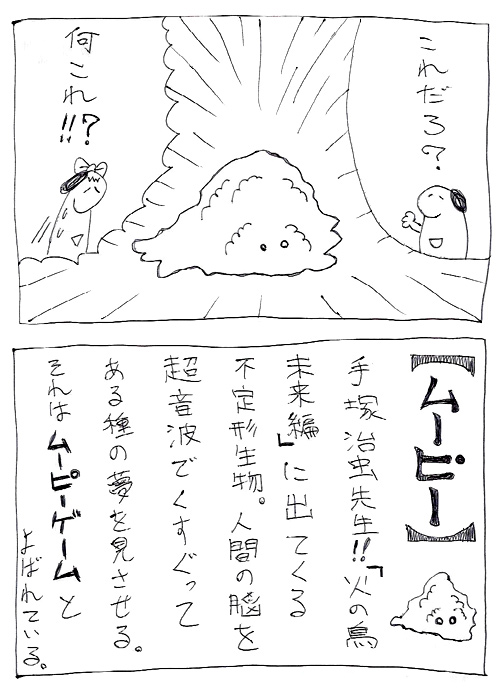 これだろ?
何これ!!?
【ムーピー】
手塚治虫先生!!「火の鳥
未来編」に出てくる
不定形生物。人間の脳を
超音波でくすぐって
ある種の夢を見させる。
それはムーピーゲームと
よばれている。